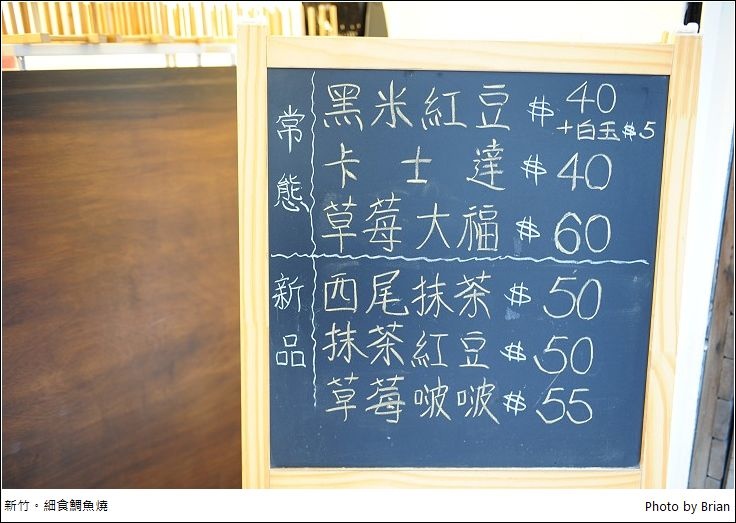 常態
黑米紅豆 $40
+白玉$5
卡士達 $40
草莓大福 $60
新品
西尾抹茶 $50
抹茶紅豆 $50
草莓啵啵 $55
新竹。細食鯛魚燒
Photo by Brian